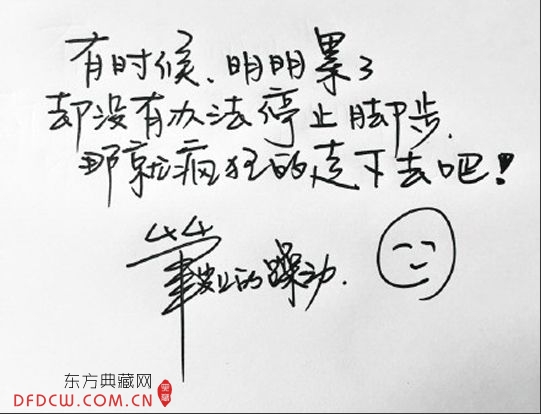 有时候、明明累了
却没有办法停止脚步.
那就疯狂的走下去吧!
的躁动.
东方典藏网
DFDCW.COM.CN